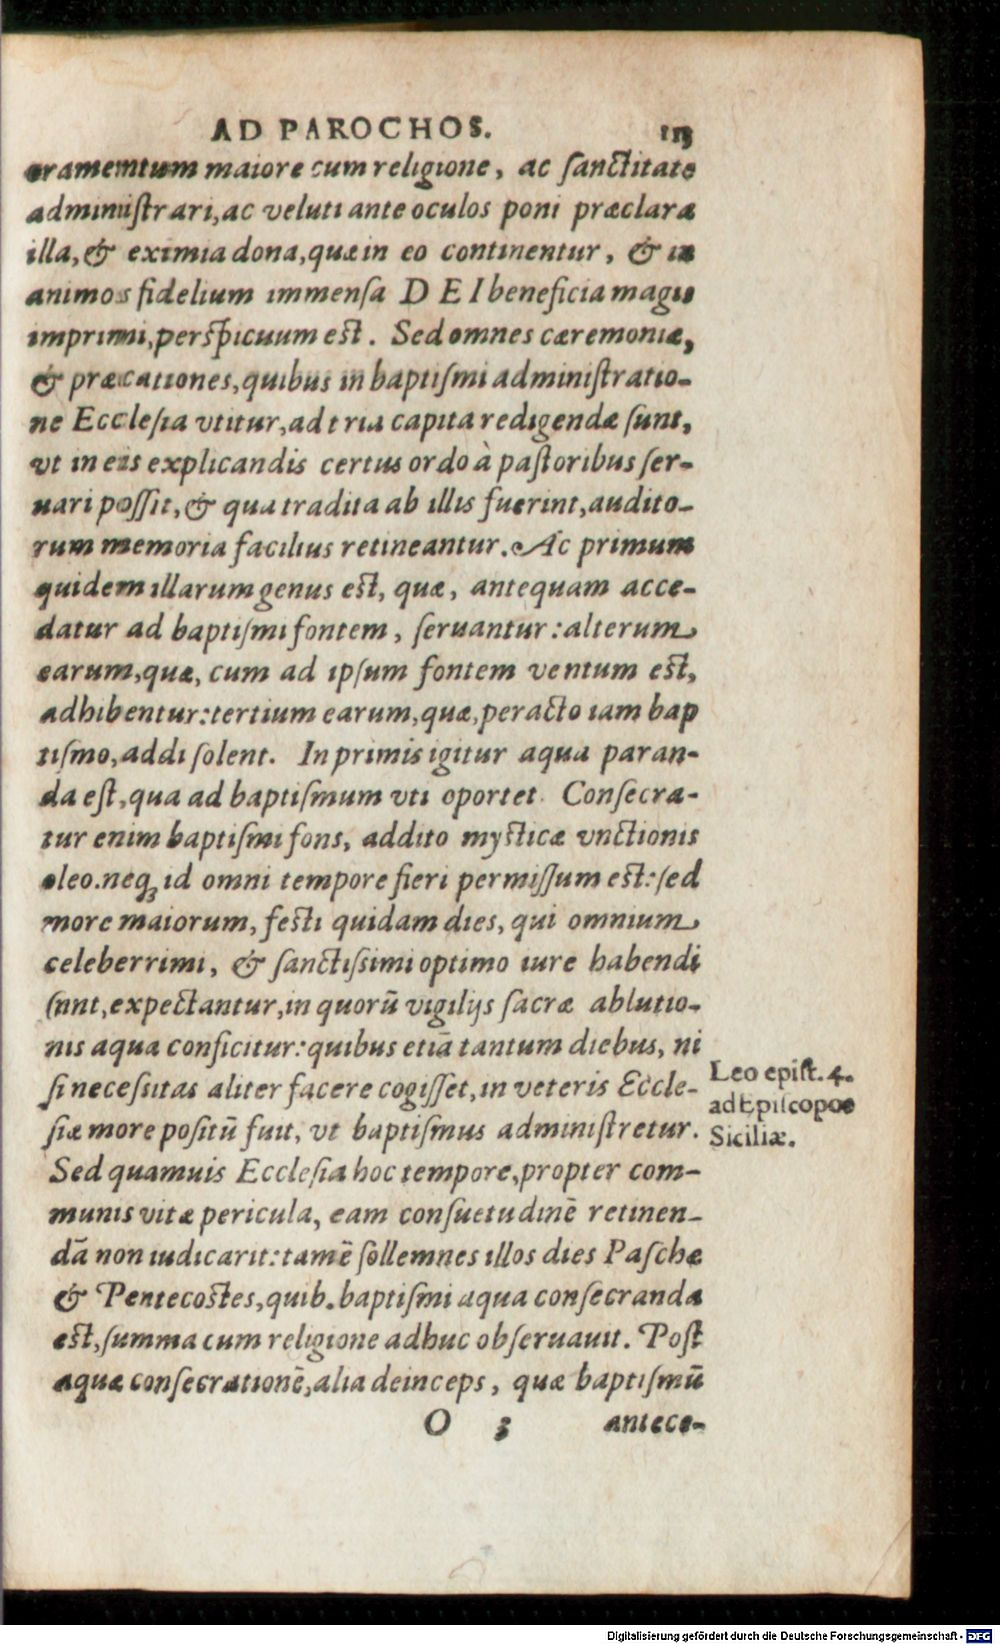 AD PAROCHOS. 113
cramentum maiore cum religione, ac sanctitate
administrari, ac veluti ante oculos poni præclara
illa, & eximia dona, quæ in eo continentur, & in
animos fidelium immensa DEI beneficia magis
imprimi, perspicuum est. Sed omnes cæremoniæ,
& præcationes, quibus in baptismi administratio-
ne Ecclesia vtitur, ad tria capita redigendæ sunt,
vt in eis explicandis certus ordo à pastoribus ser-
uari possit, & qua tradita ab illis fuerint, audito-
rum memoria facilius retineantur. Ac primum
quidem illarum genus est, quæ, antequam acce-
datur ad baptismi fontem, seruantur: alterum
earum, quæ, cum ad ipsum fontem ventum est,
adhibentur: tertium earum, quæ, peracto iam bap
tismo, addi solent. In primis igitur aqua paran-
da est, qua ad baptismum vti oportet. Consecra-
tur enim baptismi fons, addito mysticæ vnctionis
oleo. neq; id omni tempore fieri permissum est: sed
more maiorum, festi quidam dies, qui omnium
celeberrimi, & sanctissimi optimo iure habendi
snnt, expectantur, in quorū vigilijs sacræ ablutio-
nis aqua conficitur: quibus etiā tantum diebus, ni
si necessitas aliter facere cogisset, in veteris Eccle-
siæ more positū fuit, vt baptismus administretur.
Leo epist. 4.
ad Episcopos
Siciliæ.
Sed quamuis Ecclesia hoc tempore, propter com-
munis vitæ pericula, eam consuetudinē retinen-
dā non iudicarit: tamē sollemnes illos dies Paschæ
& Pentecostes, quib. baptismi aqua consecranda
est, summa cum religione adhuc obseruauit. Post
aquæ consecrationē, alia deinceps, quæ baptismū
O 3 antece-
Digitalisierung gefördert durch die Deutsche Forschungsgemeinschaft - DFG